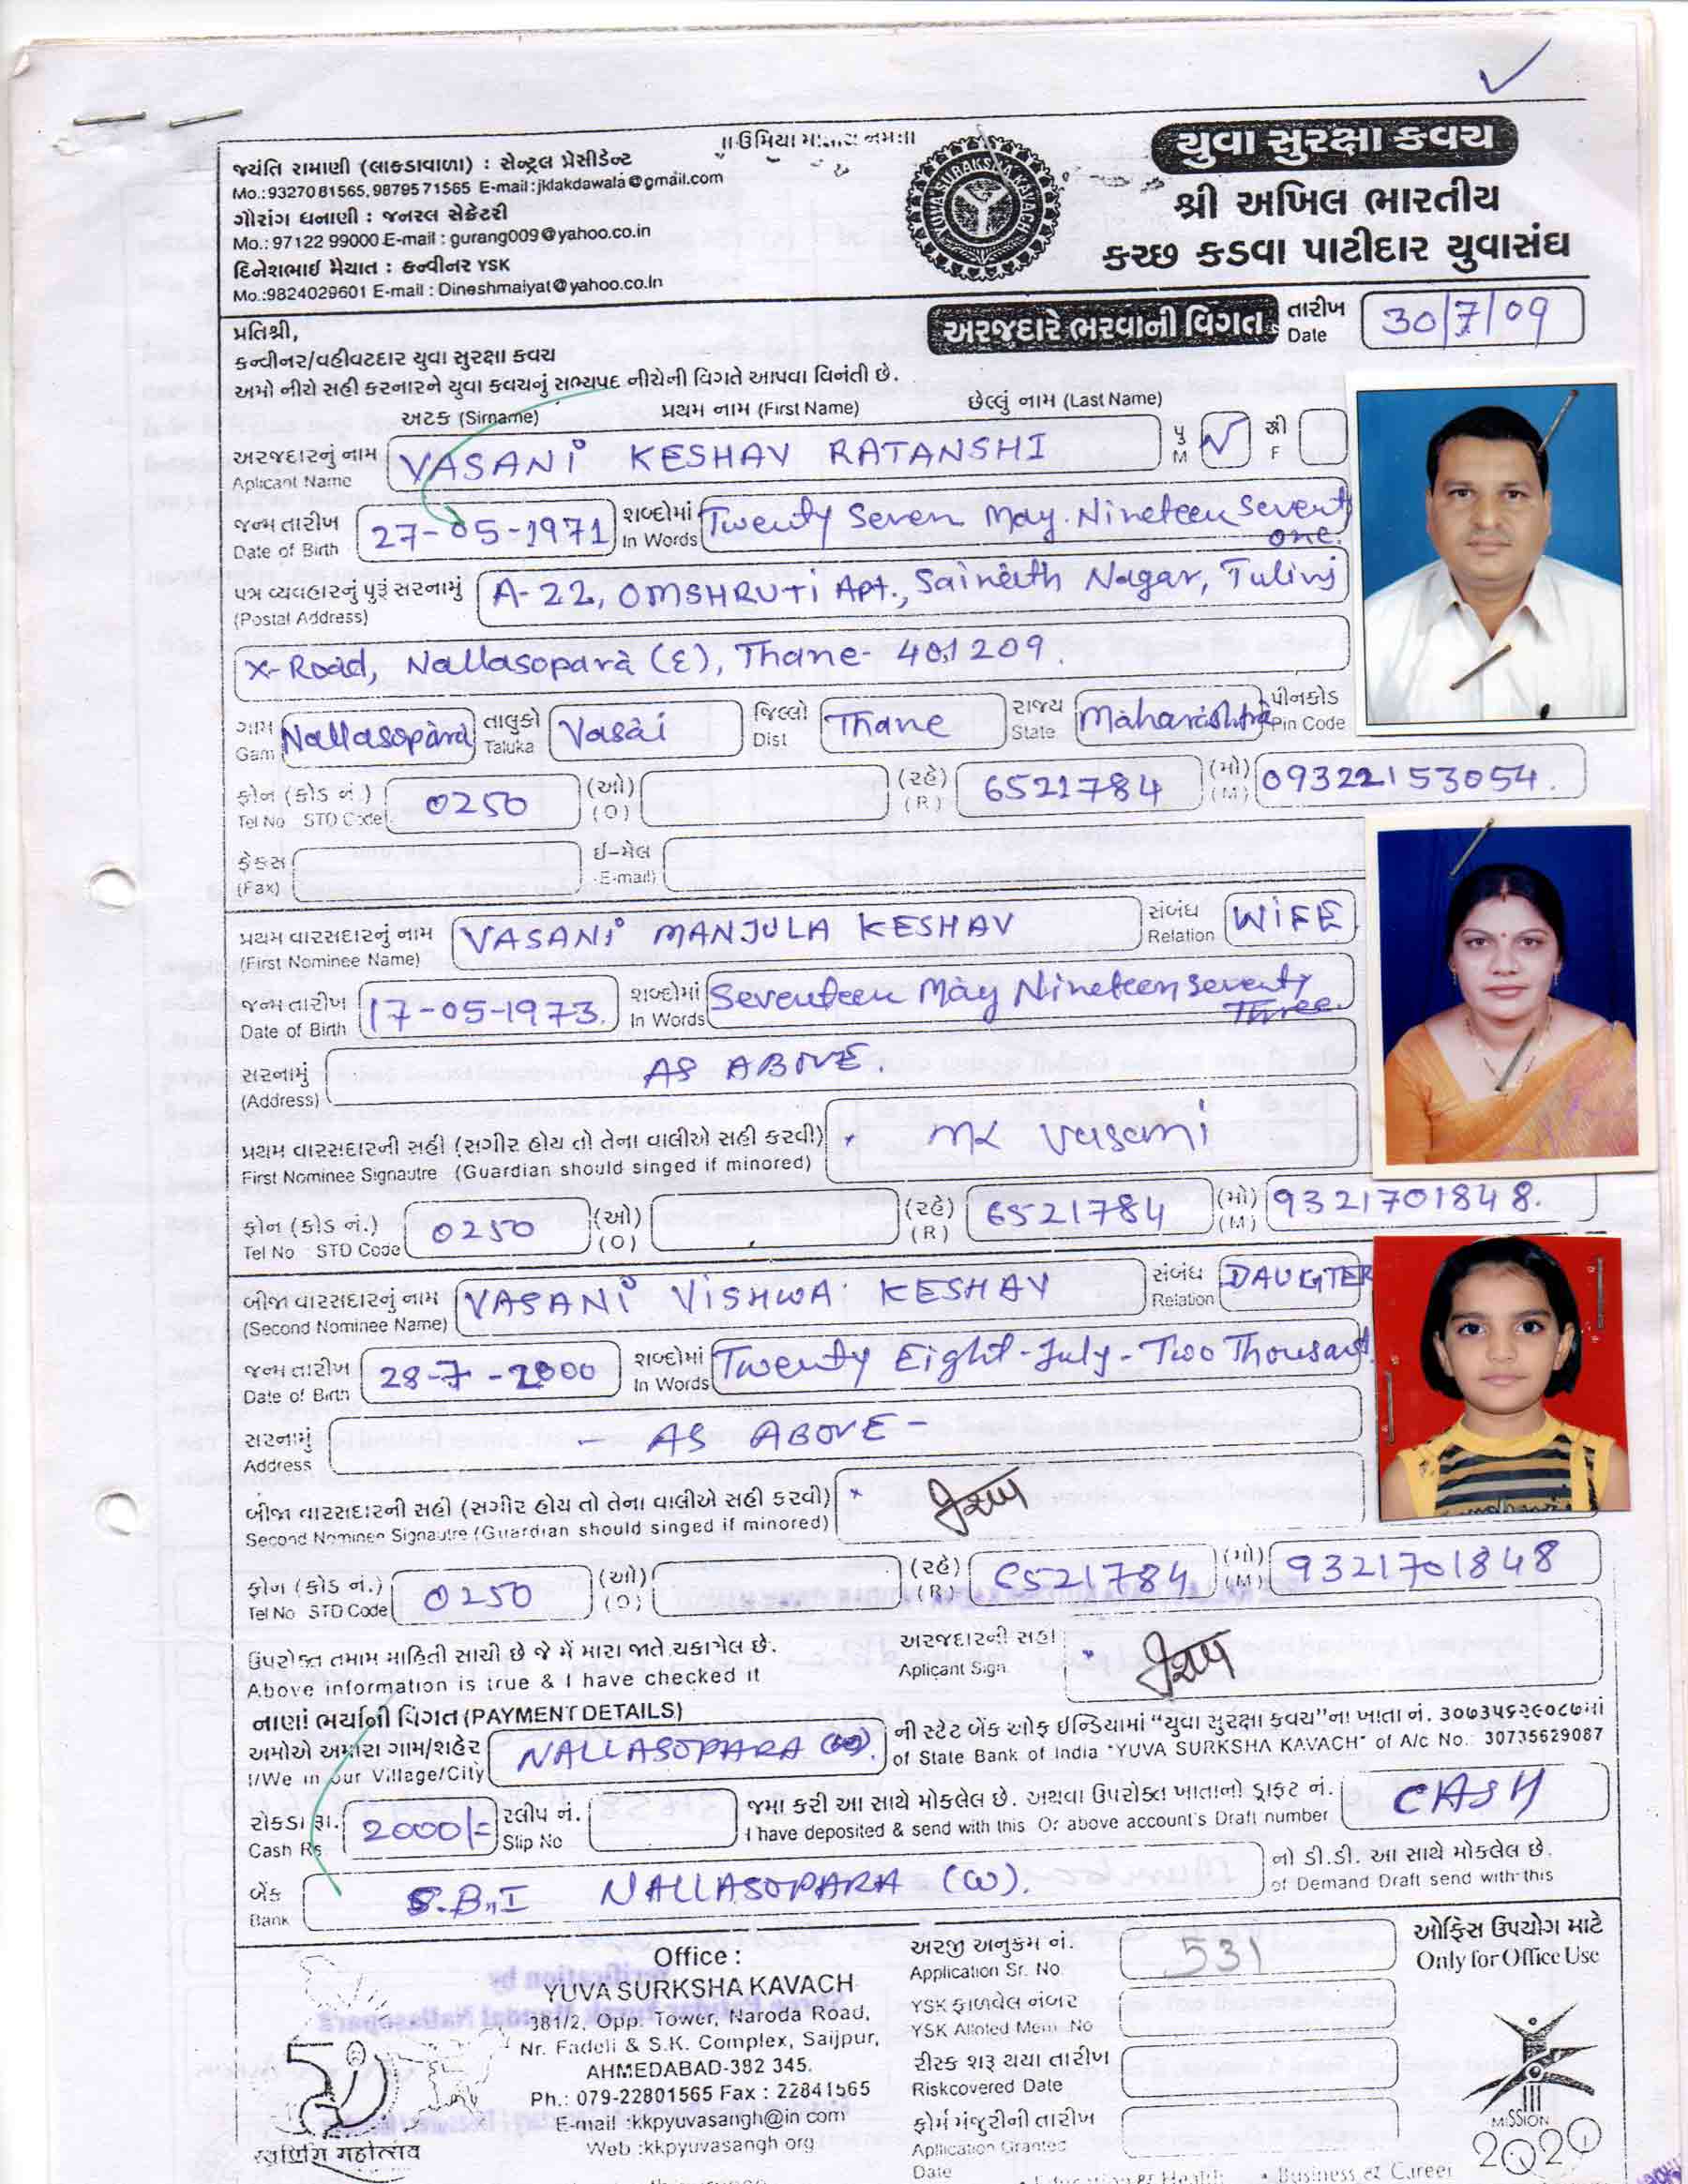 જયંતિ રામાણી (લાકડાવાળા) : સેન્ટ્રલ પ્રેસીડેન્ટ
Mo.:9327081565,9879571565 E-mail:jklakdawala@gmail.com
ગૌરાંગ ધનાણી : જનરલ સેક્રેટરી
Mo.: 97122 99000 E-mail : gurang009@yahoo.co.in
દિનેશભાઈ મૈયાત : કન્વીનર YSK
Mo.:9824029601 E-mail : Dineshmaiyat@yahoo.co.In
YUVA SURAKSHA KAVACH
યુવા સુરક્ષા કવચ
શ્રી અખિલ ભારતીય
કચ્છ કડવા પાટીદાર યુવાસંઘ
અરજદારે ભરવાની વિગત
તારીખ Date 30/7/09
પ્રતિશ્રી,
કન્વીનર/વહીવટદાર યુવા સુરક્ષા કવચ
અમો નીચે સહી કરનારને યુવા કવચનું સભ્યપદ નીચેની વિગતે આપવા વિનંતી છે.
અટક (Sirname) પ્રથમ નામ (First Name) છેલ્લું નામ (Last Name)
અરજદારનું નામ Aplicant Name VASANI KESHAV RATANSHI પુ M સ્ત્રી F
જન્મ તારીખ Date of Birth 27-05-1971 શબ્દોમાં In Words Twenty Seven May Nineteen Seventy one.
પત્ર વ્યવહારનું પુરૂં સરનામું (Postal Address) A-22, OMSHRUTI Apt., Sainath Nagar, Tulinj
X-Road, Nallasopara (E), Thane- 401209.
ગામ Gam Nallasopara તાલુકો Taluka Vasai જિલ્લો Dist Thane રાજ્ય State Maharashtra પીનકોડ Pin Code
ફોન (કોડ નં.) Tel No STD Code 0250 (ઓ) (O) (રહે) (R) 6521784 (મો) (M) 09322153054.
ફેકસ (Fax) ઈ-મેલ E-mail)
પ્રથમ વારસદારનું નામ (First Nominee Name) VASANI MANJULA KESHAV સંબંધ Relation WIFE
જન્મ તારીખ Date of Birth 17-05-1973. શબ્દોમાં In Words Seventeen May Nineteen Seventy Three.
સરનામું (Address) AS ABOVE.
પ્રથમ વારસદારની સહી (સગીર હોય તો તેના વાલીએ સહી કરવી) MK Vasani
First Nominee Signautre (Guardian should singed if minored)
ફોન (કોડ નં.) Tel No STD Code 0250 (ઓ) (O) (રહે) (R) 6521784 (મો) (M) 9321701848.
બીજા વારસદારનું નામ (Second Nominee Name) VASANI VISHWA KESHAV સંબંધ Relation DAUGTER
જન્મ તારીખ Date of Birth 28-7-2000 શબ્દોમાં In Words Twenty Eight-July-Two Thousand
સરનામું Address - AS ABOVE -
બીજા વારસદારની સહી (સગીર હોય તો તેના વાલીએ સહી કરવી)
Second Nominee Signautre (Guardian should singed if minored)
ફોન (કોડ નં.) Tel No STD Code 0250 (ઓ) (O) (રહે) (R) 6521784 (મો) (M) 9321701848
ઉપરોક્ત તમામ માહિતી સાચી છે જે મેં મારા જાતે ચકાશેલ છે. અરજદારની સહી
Above information is true & I have checked it Aplicant Sign.
નાણાં ભર્યાની વિગત (PAYMENT DETAILS)
અમોએ અમારા ગામ/શહેર NALLASOPARA (W). ની સ્ટેટ બેંક ઓફ ઈન્ડિયામાં "યુવા સુરક્ષા કવચ"ના ખાતા નં. ૩૦૭૩૫૬૨૯૦૮૭માં
I/We in our Village/City of State Bank of India "YUVA SURKSHA KAVACH" of A/c No.: 30735629087
રોકડા રૂા. Cash Rs 2000/= સ્લીપ નં. Slip No જમા કરી આ સાથે મોકલેલ છે. અથવા ઉપરોક્ત ખાતાનો ડ્રાફટ નં. CASH
I have deposited & send with this Or above account's Draft number
બેંક Bank S.B.I NALLASOPARA (W). નો ડી.ડી. આ સાથે મોકલેલ છે.
of Demand Draft send with this
Office :
YUVA SURKSHA KAVACH
381/2, Opp. Tower, Naroda Road,
Nr. Fadeli & S.K. Complex, Saijpur,
AHMEDABAD-382 345.
Ph.: 079-22801565 Fax : 22841565
E-mail :kkpyuvasangh@in com
Web :kkpyuvasangh org
અરજી અનુક્રમ નં. Application Sr. No 531
YSK ફાળવેલ નંબર YSK Alloted Mem. No
રીસ્ક શરૂ થયા તારીખ Riskcovered Date
ફોર્મ મંજુરીની તારીખ Apllication Granted Date
ઓફિસ ઉપયોગ માટે
Only for Office Use
50
MISSION
2020
Business & Career